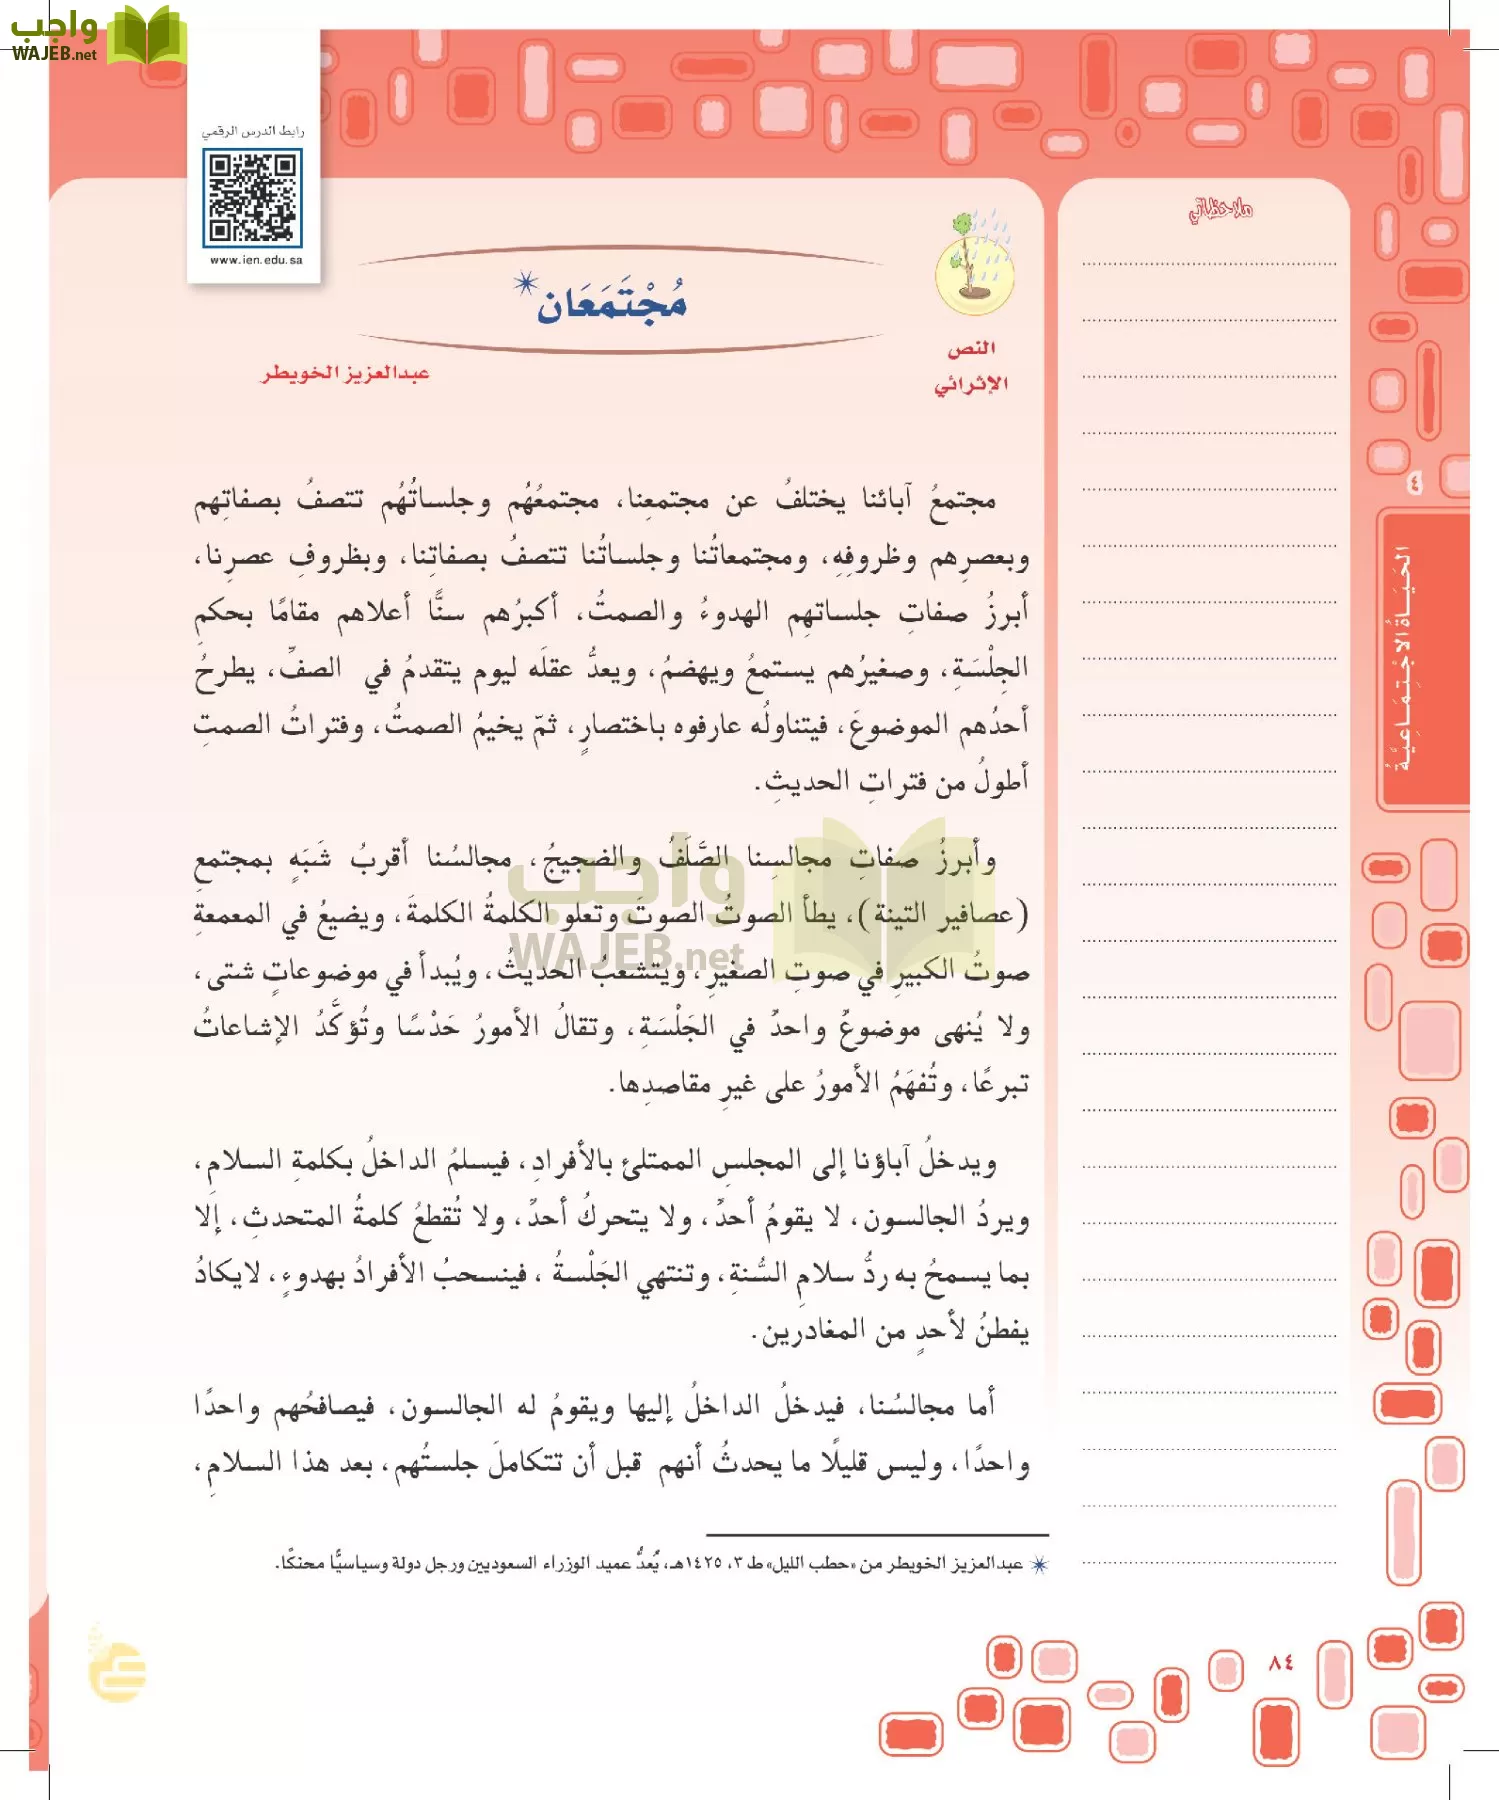 واجب
WAJEB.net
رابط الدرس الرقمي
www.ien.edu.sa
ملاحظاتي
النص
الإثرائي
مُجْتَمَعَان*
عبدالعزيز الخويطر
مجتمعُ آبائنا يختلفُ عن مجتمعِنا، مجتمعُهُم وجلساتُهُم تتصفُ بصفاتِهم
وبعصرِهم وظروفِهِ، ومجتمعاتُنا وجلساتُنا تتصفُ بصفاتِنا، وبظروفِ عصرِنا،
أبرزُ صفاتِ جلساتهِم الهدوءُ والصمتُ، أكبرُهم سنًّا أعلاهم مقامًا بحكمِ
الجِلْسَةِ، وصغيرُهم يستمعُ ويهضمُ، ويعدُّ عقلَه ليوم يتقدمُ في الصفِّ، يطرحُ
أحدُهم الموضوعَ، فيتناولُه عارفوه باختصارٍ، ثمّ يخيمُ الصمتُ، وفتراتُ الصمتِ
أطولُ من فتراتِ الحديثِ.
وأبرزُ صفاتِ مجالسِنا الصَّلَفُ والضجيجُ، مجالسُنا أقربُ شَبَهٍ بمجتمعِ
(عصافير التينة)، يطأ الصوتُ الصوتَ وتعلو الكلمةُ الكلمةَ، ويضيعُ في المعمعةِ
صوتُ الكبيرِ في صوتِ الصغيرِ، ويتشعبُ الحديثُ، ويُبدأ في موضوعاتٍ شتى،
ولا يُنهى موضوعٌ واحدٌ في الجَلْسَةِ، وتقالُ الأمورُ حَدْسًا وتُؤكَّدُ الإشاعاتُ
تبرعًا، وتُفهَمُ الأمورُ على غيرِ مقاصدِها.
واجب
WAJEB.net
ويدخلُ آباؤنا إلى المجلسِ الممتلئ بالأفرادِ، فيسلمُ الداخلُ بكلمةِ السلامِ،
ويردُ الجالسون، لا يقومُ أحدٌ، ولا يتحركُ أحدٌ، ولا تُقطعُ كلمةُ المتحدثِ، إلا
بما يسمحُ به ردُّ سلامِ السُّنةِ، وتنتهي الجَلْسةُ ، فينسحبُ الأفرادُ بهدوءٍ، لايكادُ
يفطنُ لأحدٍ من المغادرين.
أما مجالسُنا، فيدخلُ الداخلُ إليها ويقومُ له الجالسون، فيصافحُهم واحدًا
واحدًا، وليس قليلًا ما يحدثُ أنهم قبل أن تتكاملَ جلستُهم، بعد هذا السلامِ،
* عبدالعزيز الخويطر من «حطب الليل» ط ٣، ١٤٢٥هـ، يُعدُّ عميد الوزراء السعوديين ورجل دولة وسياسيًّا محنكًا.
٤
الحَيَاةُ الاجْتِمَاعِيَّةُ
٨٤